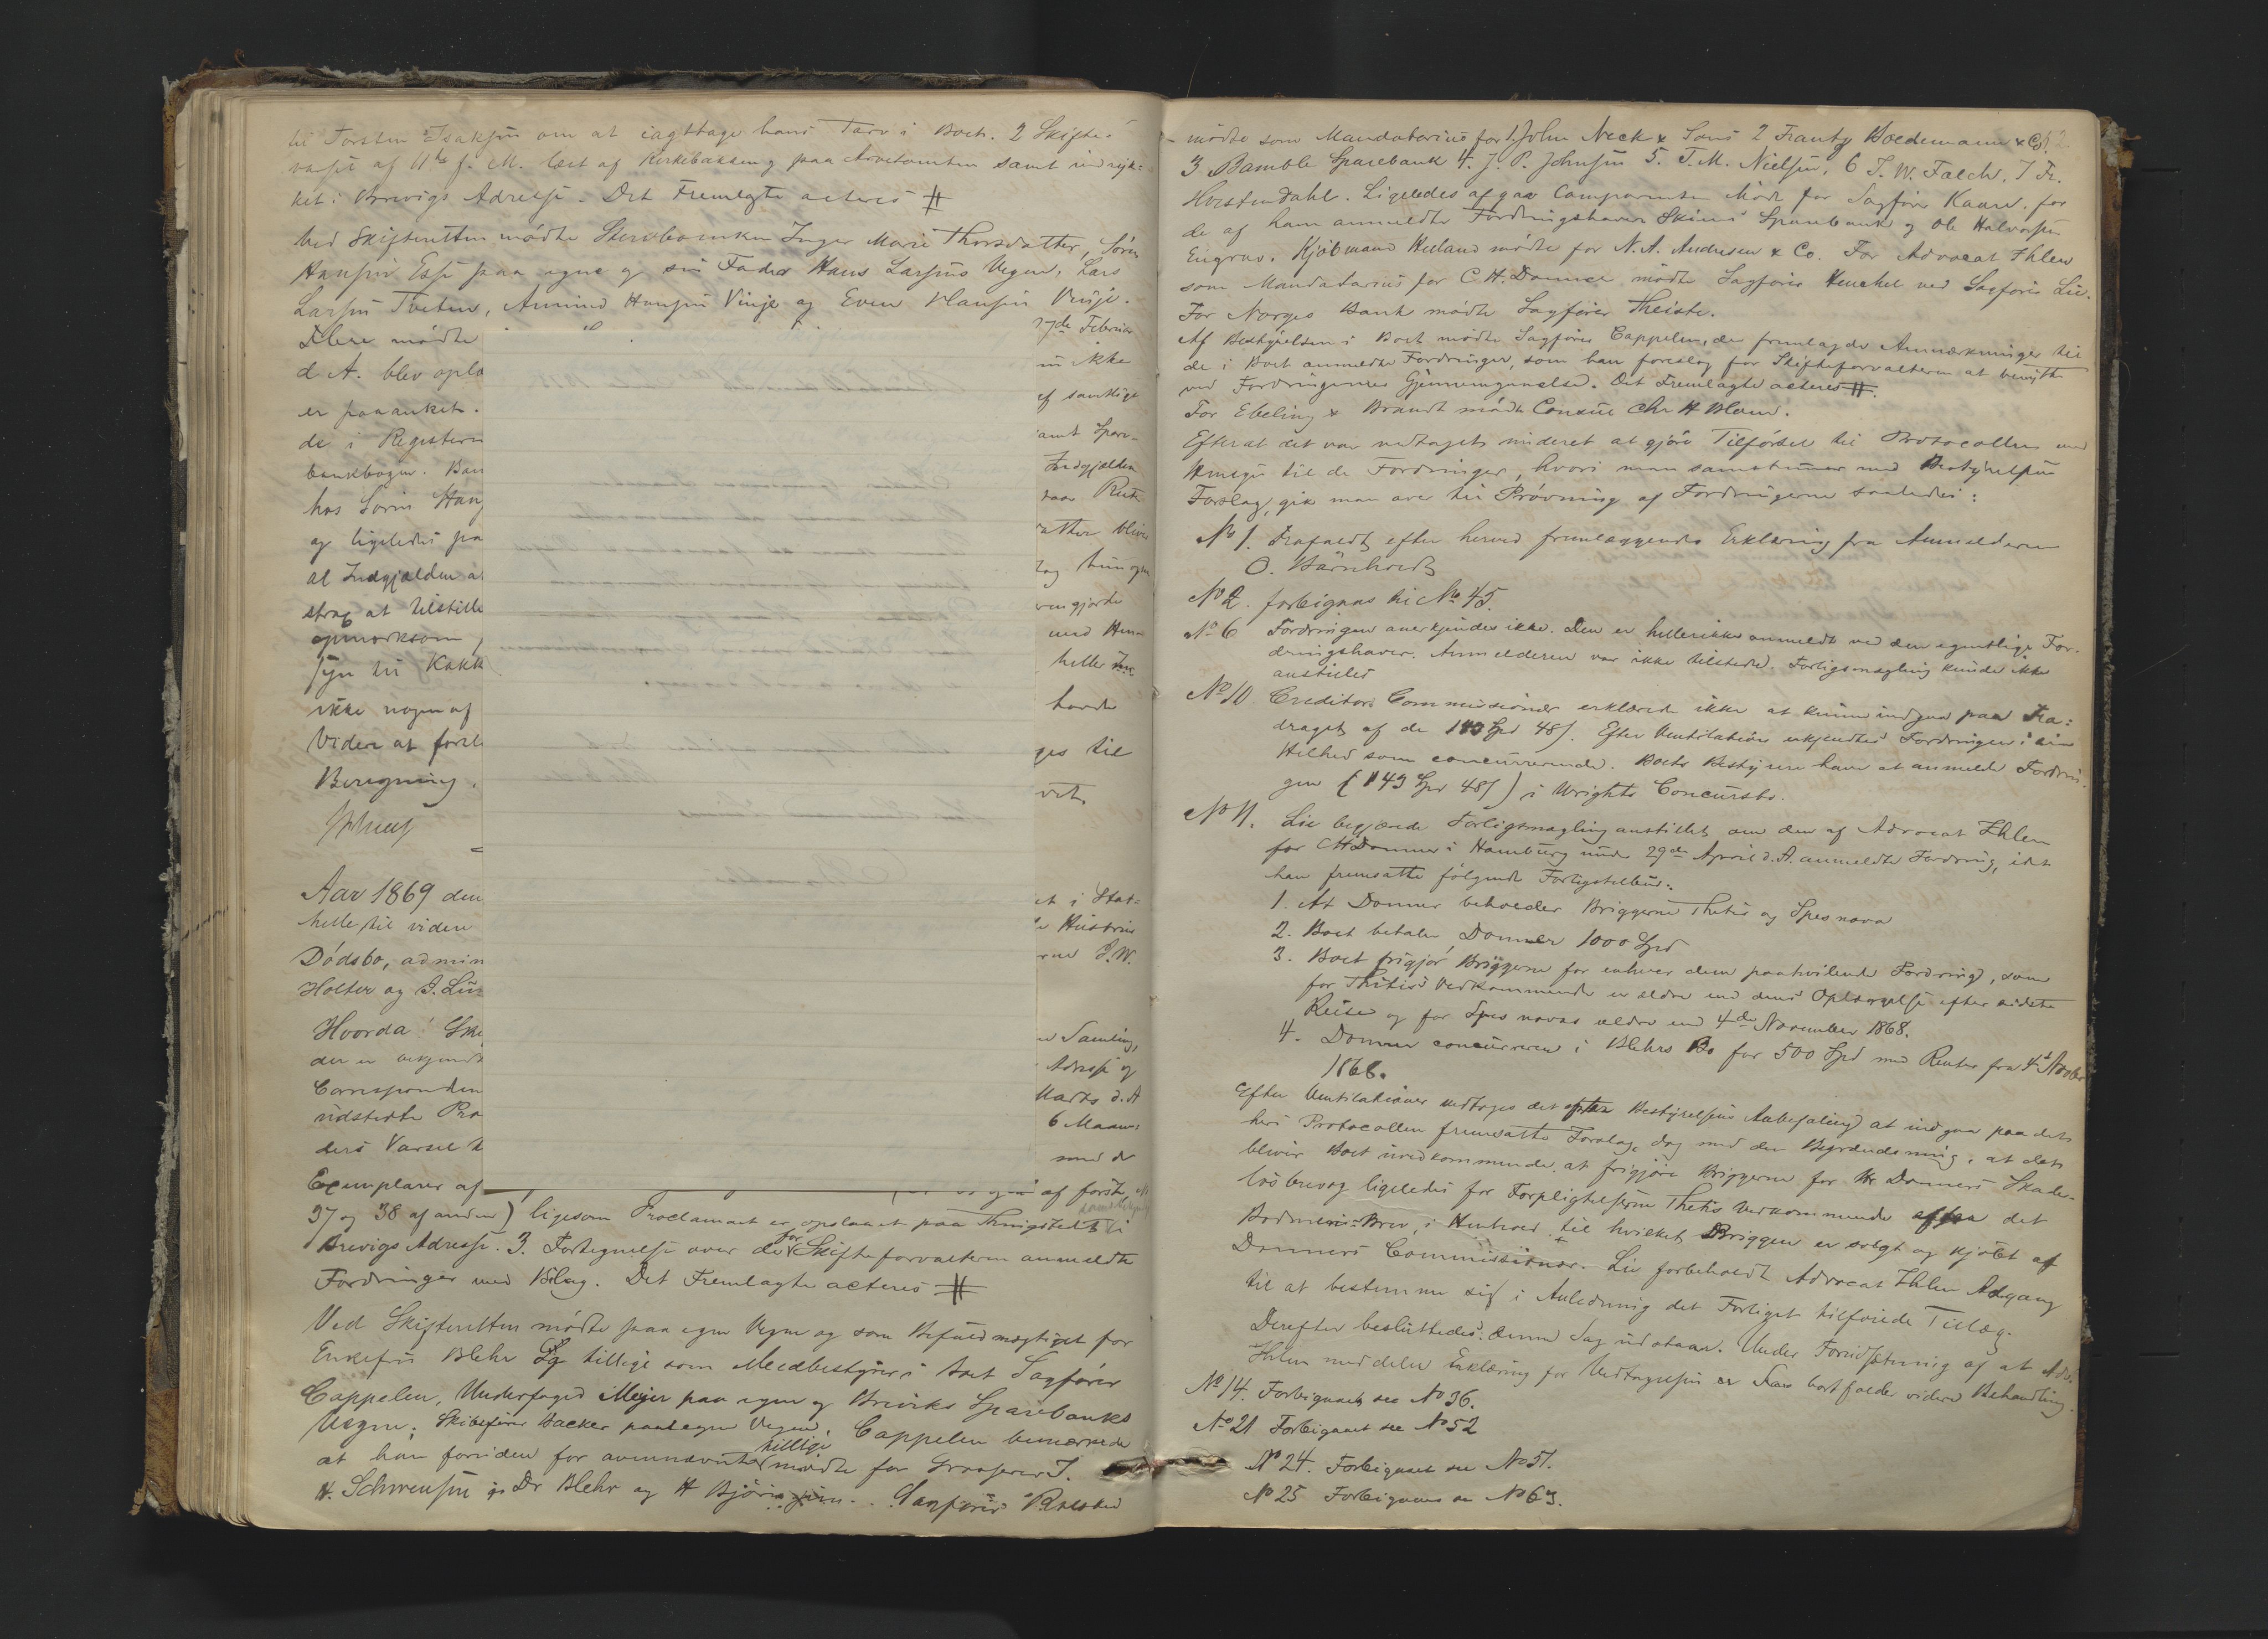 til Torsten Isaksen om at iagttage hans Tarv i Boet. 2 Skiftes
varsel af 11te f. M. læst af Kirkebakken og paa Arvetomten samt indryk=
ket i Brevigs Adresse. Det Fremlagte acteres #
Ved Skifteretten mødte Stervboenken Inger Marie Thorsdatter, Søren
Hansen Esse paa egne og sin Fader Hans Larsens Vegne, Lars
Larsen Tveten, Amund Hansen Vinje og Even Hansen Vinje.
Flere mødte 17de Februar
d A. blev oplæ ikke
er paaanket. af samtlige
de i Registeri samt Spare-
bankbogen. Indgjælden
hos Søren Han Rente
og ligeledes pa atter bliver
at Indgjælden a
strax at tilstille gjorde
opmærksom med Hen
syn til Kakk heller
ikke nogen af havde
Videre at foret ges til
Beregning. vet.
Aar 1869 den et i Stat=
helle til videre Hustrues
Dødsbo, admin J. W.
Holter og J. Lu
Hvorda! Ske Samling,
der er bekjendt Adresse og
Corresponden Marts d. A
udstedte Pro 6 Maane=
ders Varsel med de
Exemplarer af af første,
37 og 38 af anden) ligesom Proclamaet er opslaaet paa Thingstedet i
Brevigs Adresse. 3. Fortegnelse over de for Skifteforvalteren anmeldte
Fordringer med Bilag. Det Fremlagte acteres #
Ved Skifteretten mødte paa egne Vegne og som Befuldmægtiget for
Enkefru Blehr tillige som Medbestyrer i Boet Sagfører
Cappelen, Underfoged Meyer paa egne og Breviks Sparebanks
Vegne, Skibsfører Backer paa egne Vegne. Cappelen bemærkede
at han foruden for ovennævnte tillige mødte for Grosserer J.
H. Schwensen Dr Blehr og H Bjørn Sagfører
mødte som Mandatarius for 1 John Neck & Sons 2 Frantz Boedemann & Co.
3 Bamble Sparebank 4. J. P. Johnsen 5. T. M. Nielsen, 6 J. W. Falch, 7 Fr.
Horstendahl. Ligeledes afgav Comparenten Møde for Sagfører Kaurn. for
de af ham anmeldte Fordringshavere Skiens Sparebank og Ole Halvorsen
Engrav. Kjøbmand Heeland mødte for N. A. Andresen & Co. For Advocat Ihlen
som Mandatarius for C. H. Donner mødte Sagfører Henchel ved Sagfører Lie.
For Norges Bank mødte Sagfører Theiste.
Af Bestyrelsen i Boet mødte Sagfører Cappelen, der fremlagde Anmærkninger til
de i Boet anmeldte Fordringer, som han foreslog for Skifteforvalteren at benytte
ved Fordringernes Gjennemgaaelse. Det Fremlagte acteres #.
For Ebeling & Brandt mødte Consul Chr H Blom.
Efterat det var vedtaget intet at gjøre Tilførsel til Protocollen med
Hensyn til de Fordringer, hvori man samstemmer med Bestyrelsens
Forslag, gik man over til Prøvning af Fordringerne saaledes:
No 1. Frafaldt efter herved fremlæggende Erklæring fra Anmelderen
O. Bärnholdt
No 2. forbigaaes til No 45.
No 6 Fordringen anerkjendes ikke. Den er hellerikke anmeldt ved den egentlige For-
dringshaver. Anmelderen var ikke tilstede. Forligsmægling kunde ikke
anstilles
No 10 Creditors Commissionær erklærede ikke at kunne indgaa paa Fra=
draget af de 143 Spd 48 s. Efter Ventilation erkjendtes Fordringen i sin
Helhed som concurrerende. Boets Bestyrer have at anmelde Fordrin
gen (143 Spd 48 s) i Wrights Concursbo.
No 11. Lie begjærede Forligsmægling anstillet om den af Advocat Ihlen
for C H Donner i Hamburg under 29de April d. A. anmeldte Fordring, idet
han fremsatte følgende Forligstilbud:
1. At Donner beholder Briggerne Thetis og Spes nova
2. Boet betaler Donner 1000 Spd
3. Boet frigjør Briggerne for enhver dem paahvilende Fordring, som
for Thetis's Vedkommende er ældre end dens Oplæggelse efter sidste
Reise og for Spes novas ældre end 4de November 1868.
4. Donner concurrerer i Blehrs Bo for 500 Spd med Renter fra 4de Novbr
1868.
Efter Ventilationer vedtoges det efter Bestyrelsens Anbefaling at indgaa paa det
her i Protocollen fremsatte Forslag, dog med den Begrændsning, at det
bliver Boet uvedkommende at frigjøre Briggerne for Hr Donners Skades-
løsbrev og ligeledes for Forpligtelserne Thetis Vedkommende efter det
Bodmeri-Brev, i Henhold til hvilket Briggen er solgt og kjøbt af
Donners Commissionær. Lie forbeholdt Advocat Ihlen Adgang
til at bestemme sig i Anledning det Forliget tilføiede Tillæg.
Derefter besluttedes: denne Sag udstaar. Under Forudsætning af at Adv.
Ihlen meddeler Erklæring for Vedtagelsen er bortfalder videre Behandling.
No 14. Forbigaaet see No 36.
No 21 Forbigaaet see No 52
No 24. Forbigaaet see No 51.
No 25 Forbigaaes se No 63.